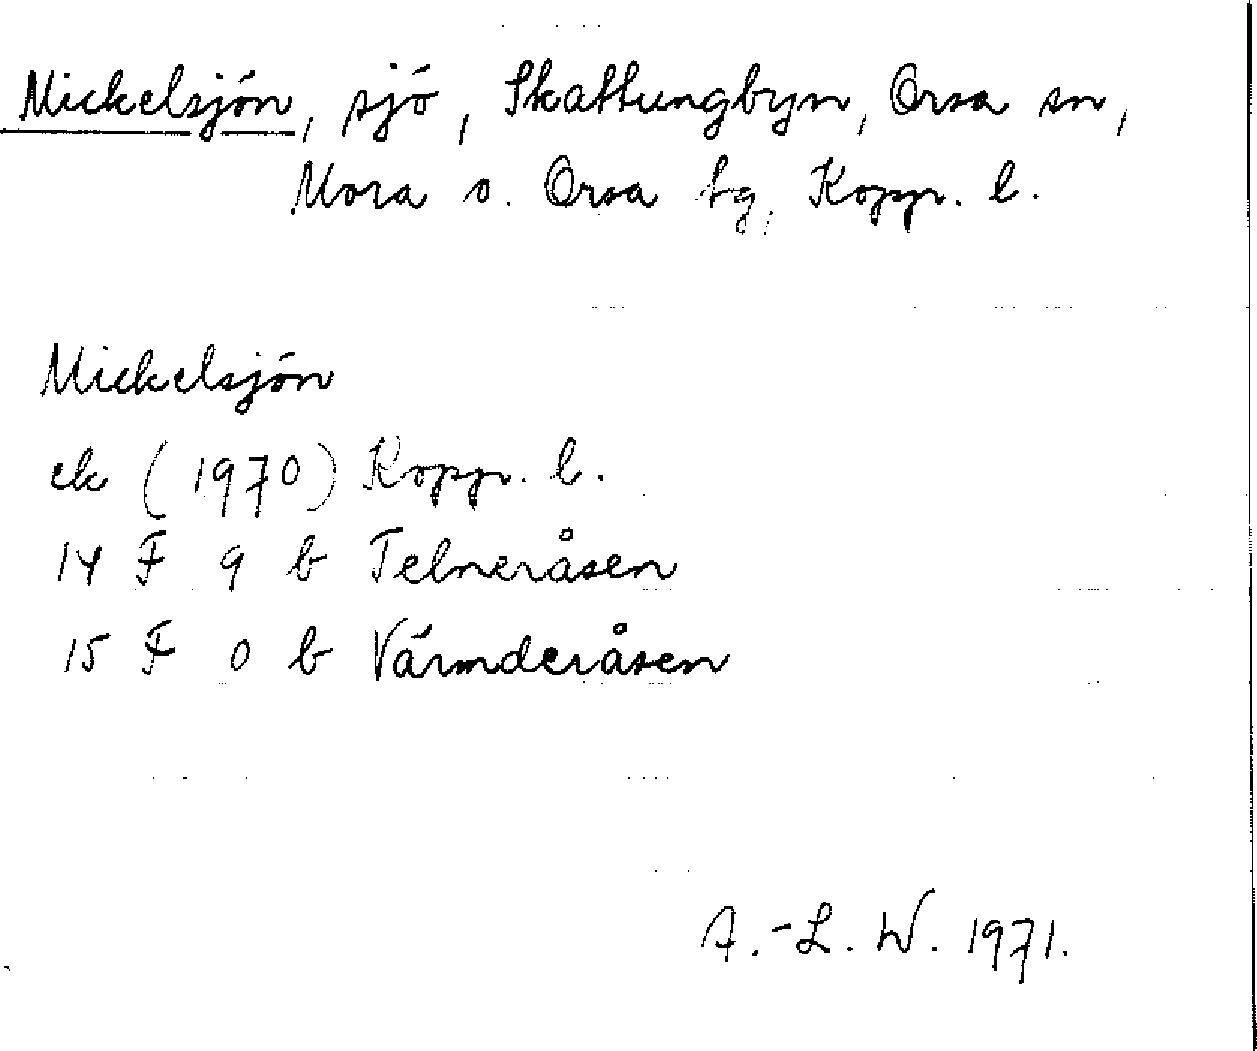 Mickelsjön, sjö, Skattungbyn, Orsa sn,
Mora o. Orsa tg, Kopp. l.
Mickelsjön
ek (1970) Kopp. l.
14 F 9 b Telneråsen
15 F 0 b Värmderåsen
A.-L. W. 1971.